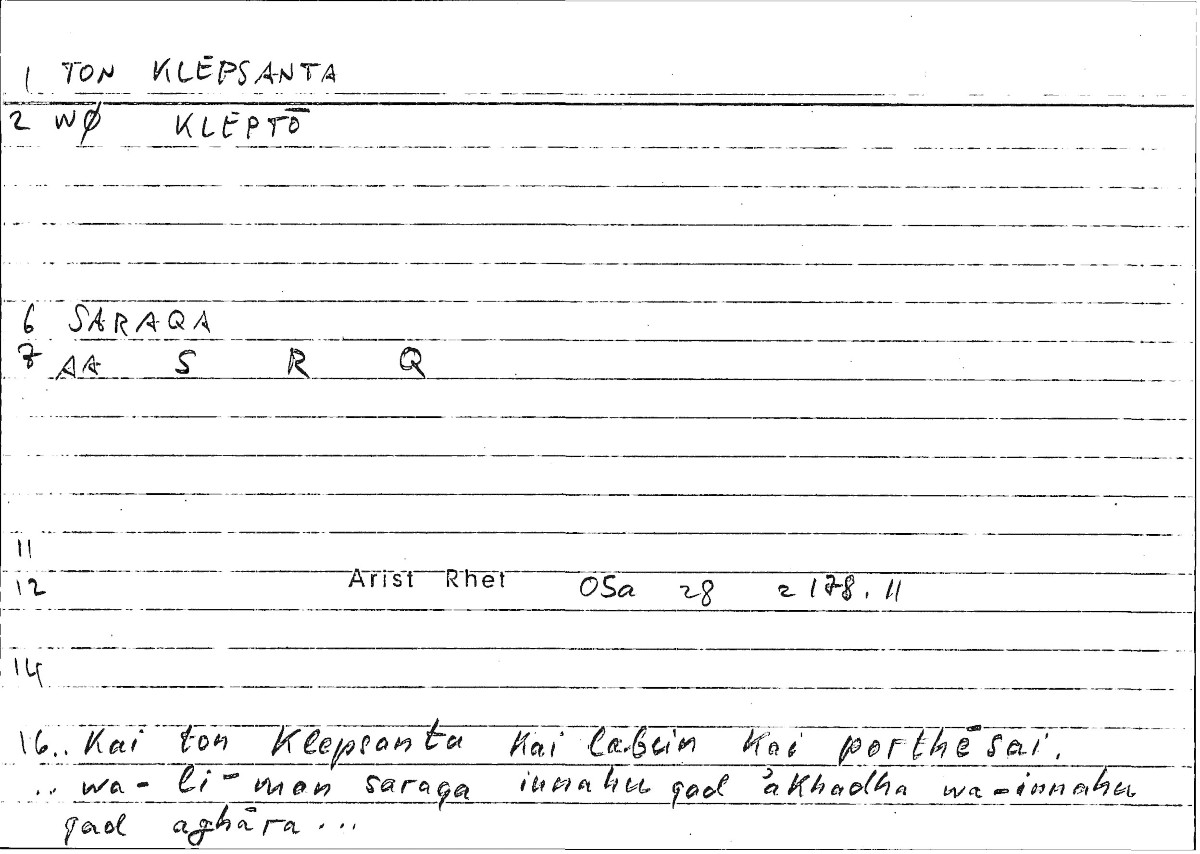 1 TON KLEPSANTA
2 WØ KLEPTŌ
6 SARAQA
7 AA S R Q
11
12 Arist Rhet 05a 28 = 178.11
14
16.. Kai ton Klepsanta kai labein kai porthēsai.
.. wa-li-man saraqa innahu qad ʾakhadha wa-innahu
qad aghāra...